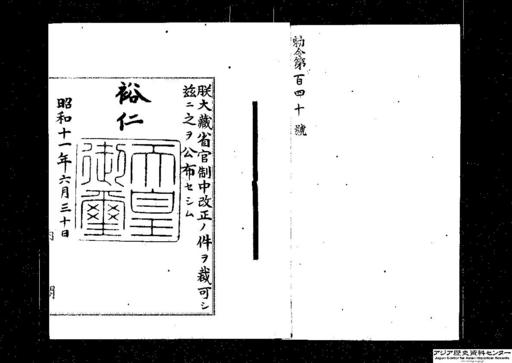 勅令第百四十號
朕大藏省官制中改正ノ件ヲ裁可シ
茲ニ之ヲ公布セシム
裕仁
天皇
御璽
昭和十一年六月三十日
アジア歴史資料センター
Japan Center for Asian Historical Records